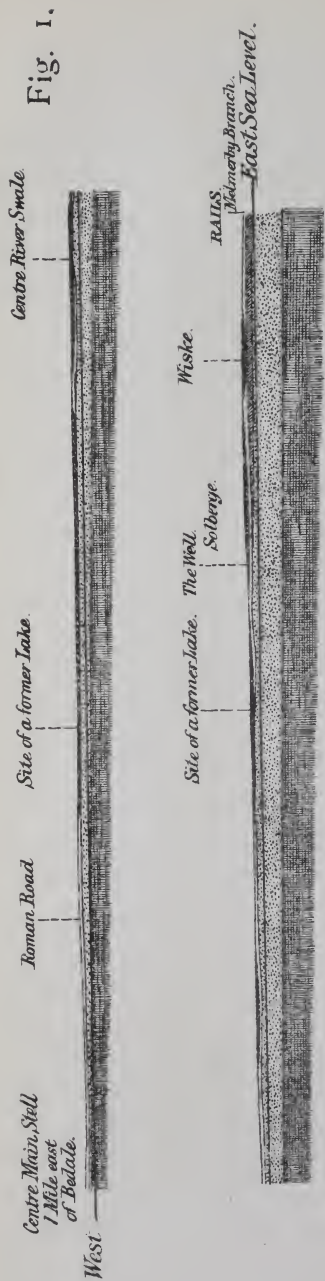 Fig. 1.
Centre Main, Stell
1 Mile east
of Bedale.
West
Roman Road
Site of a former Lake.
Centre River Swale.
Site of a former Lake.
The Well
Solberge.
Wiske.
RAILS
Melmerby Branch.
East Sea Level.